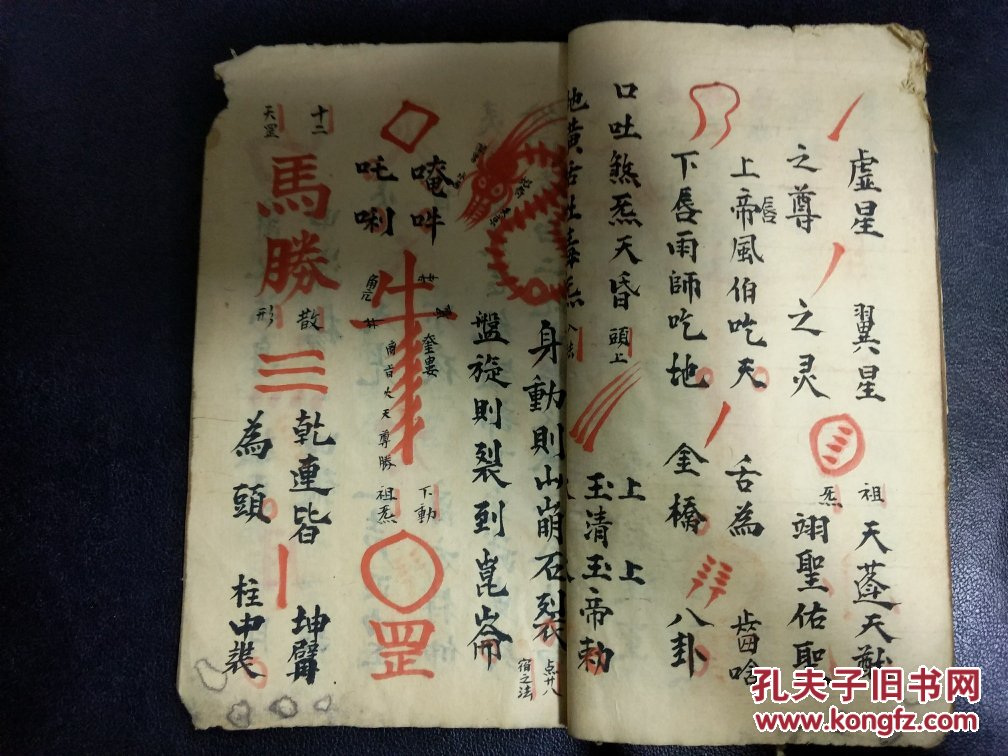 虛星 翼星 祖炁 天蓬天猷
之尊 之灵 翊聖佑聖
上帝風伯吃天 舌為 齒啥
唇
下唇雨師吃地 金橋 八卦
口吐煞炁天昏 頭上 上 上
玉清玉帝勅
身動則山崩石裂
点廿八宿之法
盤旋則裂到崑崙
唵吽
吒唎
奎婁
角亢
下動
祖炁
罡
十二
天罡
馬勝
散形
三
乾連皆 坤臂
為頭 柱中裝
孔夫子旧书网
www.kongfz.com